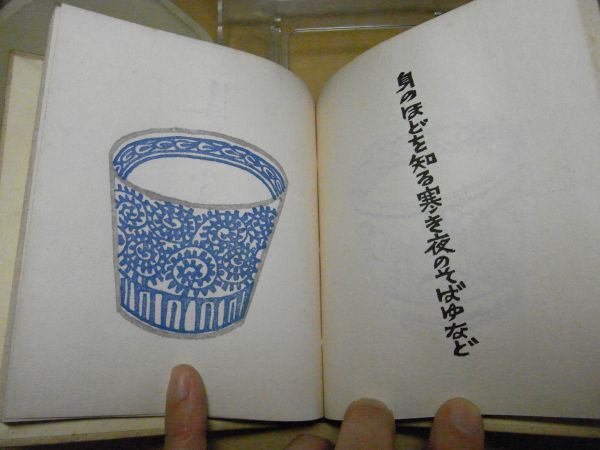 身のほどを知る寒き夜のそばゆなど